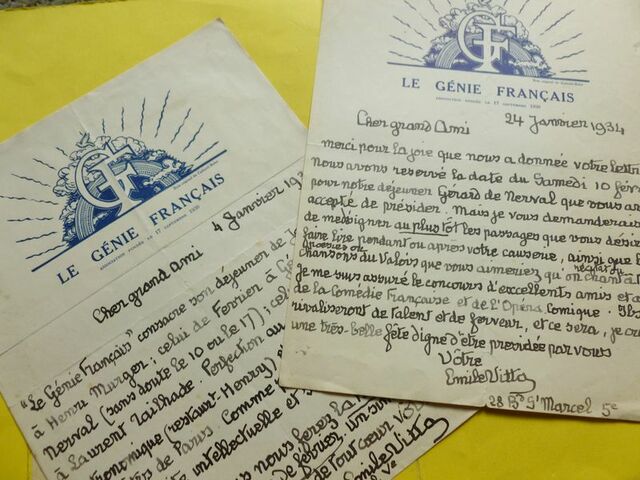 GF
LE GÉNIE FRANÇAIS
4 Janvier 193
Cher grand Ami
"Le Génie Français" consacre son déjeuner de
à Henri Murger; celui de Février à Gé
Nerval (sans doute le 10 ou le 17); cel
à Laurent Tailhade. Perfection au
tronomique (restaurt. Henry)
de Paris. Comme
intellectuelle et
nous ferez la
de février. un
de tout cœur vo
Emile Vitta
GF
LE GÉNIE FRANÇAIS
ASSOCIATION FONDÉE LE 17 SEPTEMBRE
24 Janvier 1934
Cher grand Ami
merci pour la joie que nous a donnée votre lettr
Nous avons reservé la date du Samedi 10 fév
pour notre dejeuner Gérard de Nerval que vous av
accepté de présider. Mais je vous demanderais
de me désigner au plus tôt les passages que vous dési
faire lire pendant ou après votre causerie, ainsi que l
poesies ou
chansons du Valois que vous aimeriez qu'on chantât
récitât ou
Je me suis assuré le concours d'excellents amis et a
de la Comédie Française et de l'Opéra Comique. Ils
rivaliseront de talent et de ferveur, et ce sera, je cr
une très-belle fête digne d'être presidée par vous
Votre
Emile Vitta
28 Bd St Marcel 5e